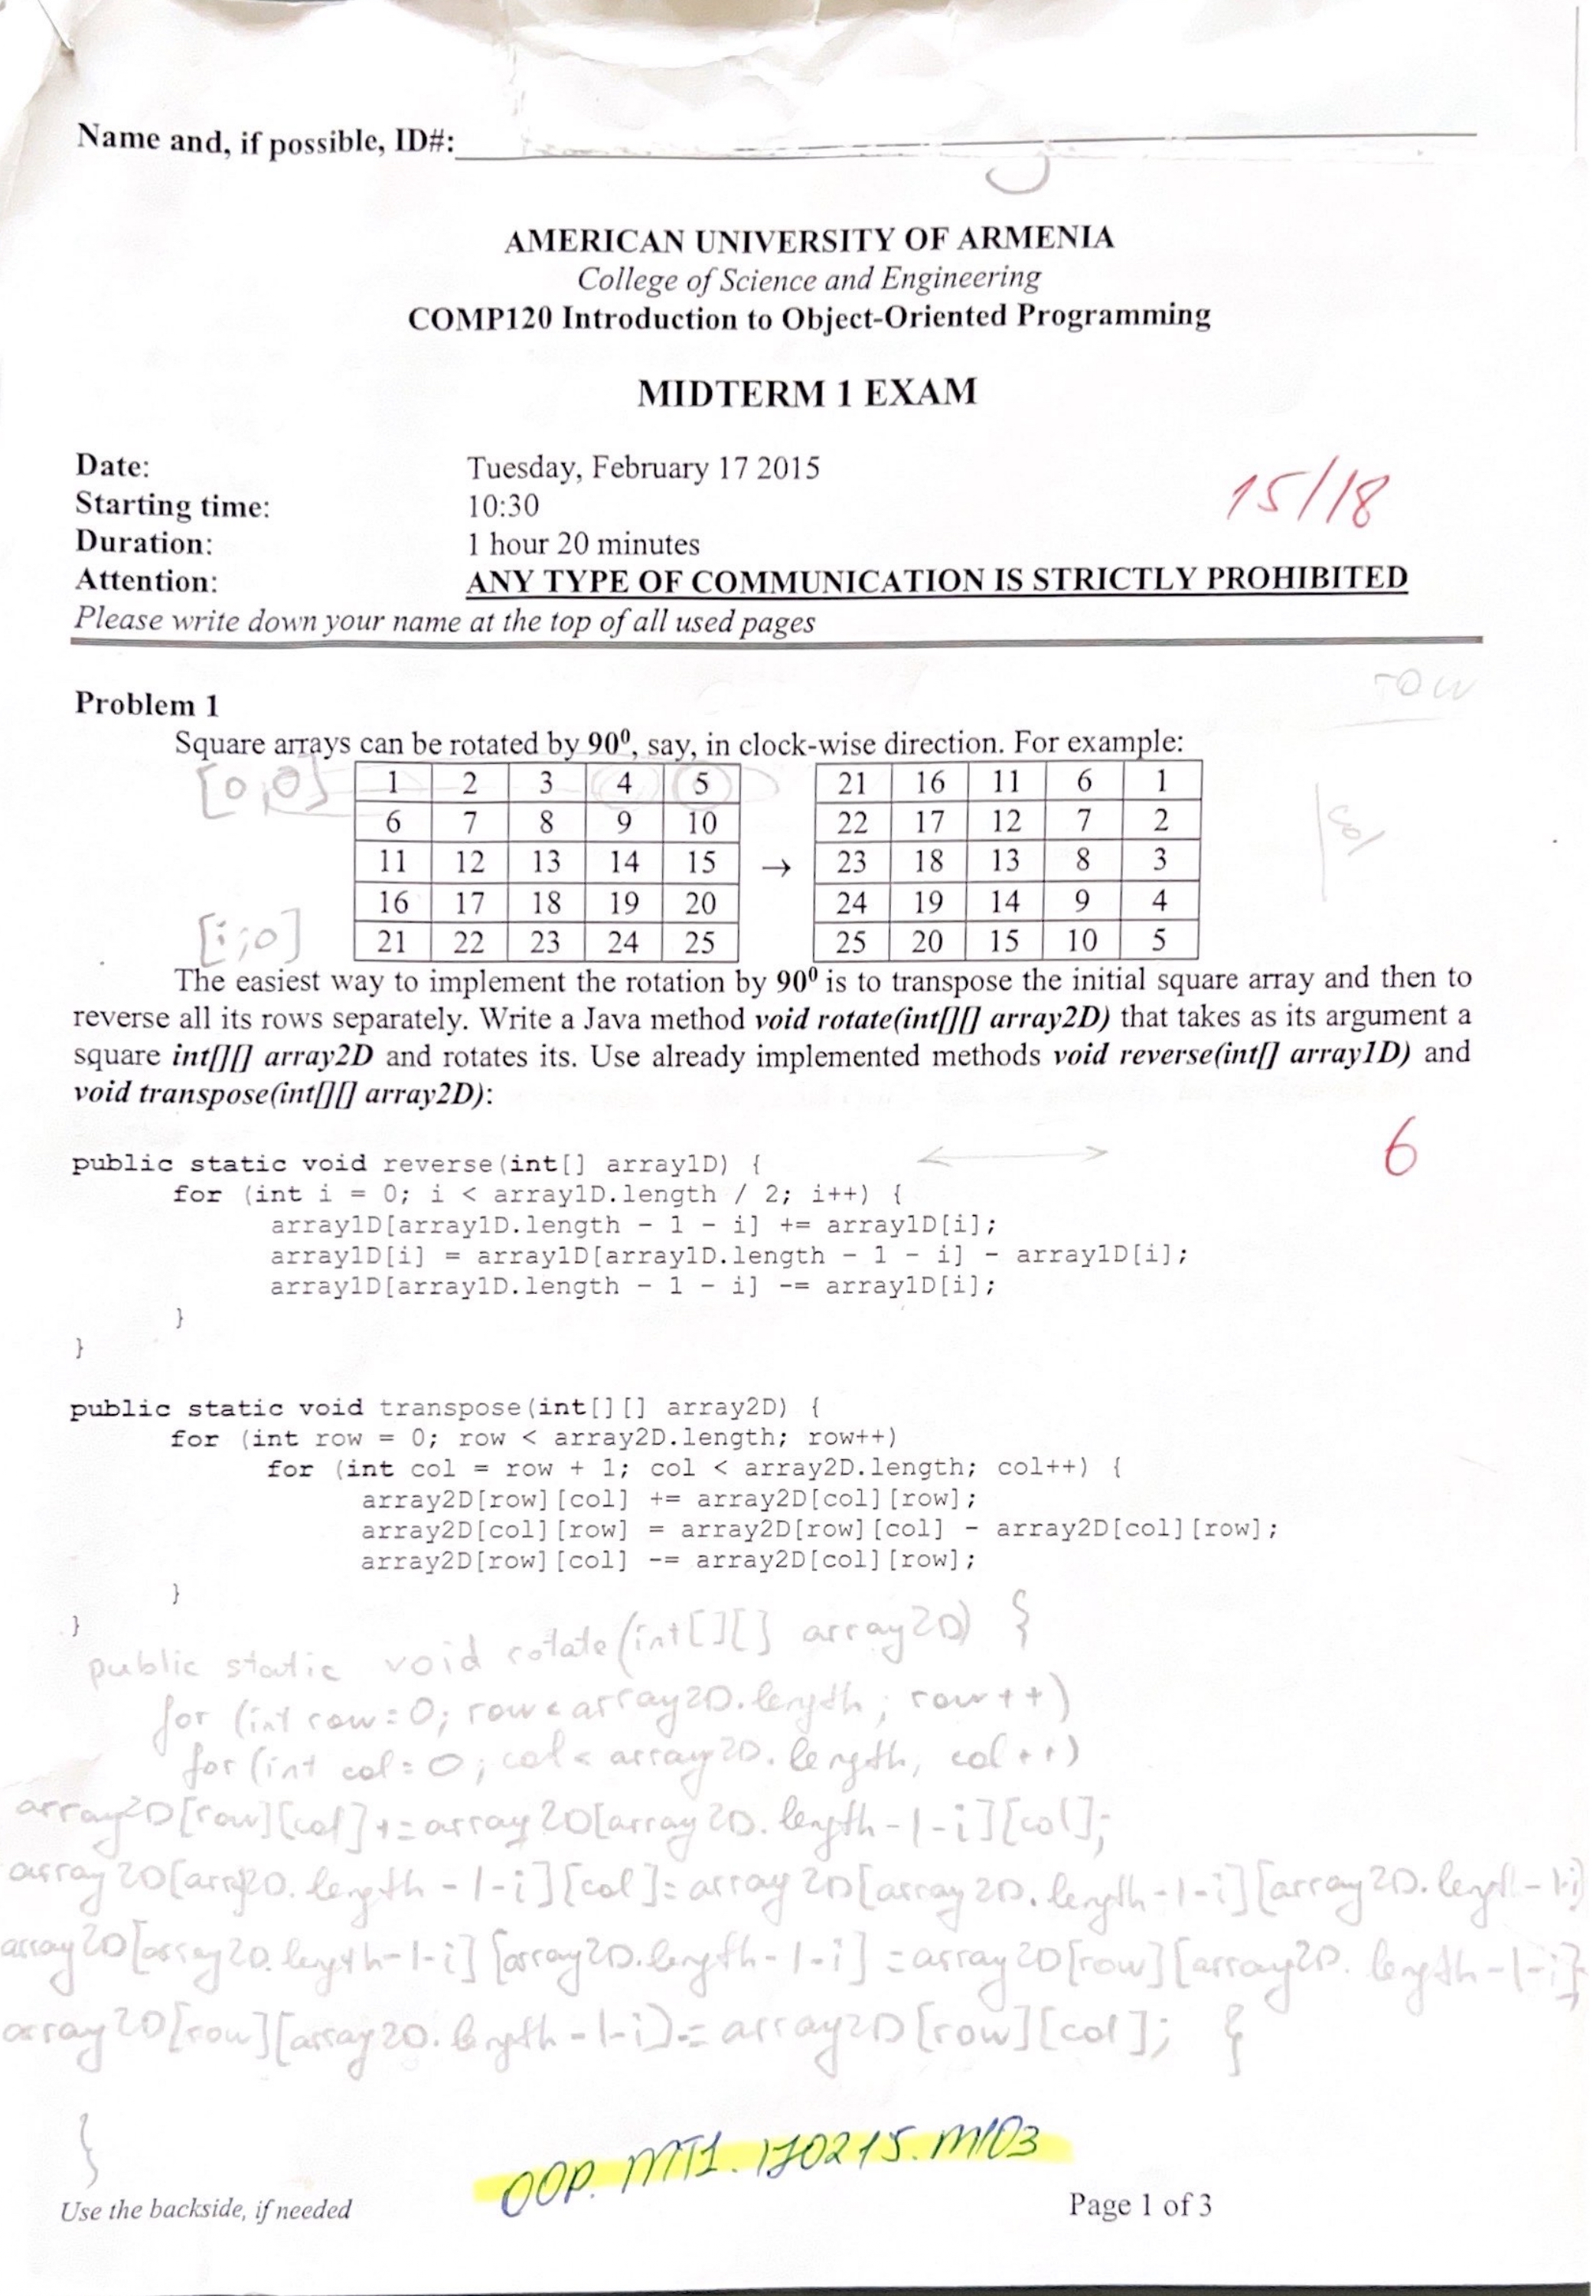 Name and, if possible, ID#:
AMERICAN UNIVERSITY OF ARMENIA
College of Science and Engineering
COMP120 Introduction to Object-Oriented Programming
MIDTERM 1 EXAM
Date: Tuesday, February 17 2015
Starting time: 10:30
15/18
Duration: 1 hour 20 minutes
Attention: ANY TYPE OF COMMUNICATION IS STRICTLY PROHIBITED
Please write down your name at the top of all used pages
row
Problem 1
Square arrays can be rotated by 90⁰, say, in clock-wise direction. For example:
[0,0] 1 2 3 4 5 21 16 11 6 1
6 7 8 9 10 22 17 12 7 2
11 12 13 14 15 → 23 18 13 8 3
16 17 18 19 20 24 19 14 9 4
[i;0] 21 22 23 24 25 25 20 15 10 5
The easiest way to implement the rotation by 90⁰ is to transpose the initial square array and then to
reverse all its rows separately. Write a Java method void rotate(int[][] array2D) that takes as its argument a
square int[][] array2D and rotates its. Use already implemented methods void reverse(int[] array1D) and
void transpose(int[][] array2D):
6
public static void reverse(int[] array1D) {
for (int i = 0; i < array1D.length / 2; i++) {
array1D[array1D.length - 1 - i] += array1D[i];
array1D[i] = array1D[array1D.length - 1 - i] - array1D[i];
array1D[array1D.length - 1 - i] -= array1D[i];
}
}
public static void transpose(int[][] array2D) {
for (int row = 0; row < array2D.length; row++)
for (int col = row + 1; col < array2D.length; col++) {
array2D[row][col] += array2D[col][row];
array2D[col][row] = array2D[row][col] - array2D[col][row];
array2D[row][col] -= array2D[col][row];
}
}
public static void rotate(int[][] array2D) {
for (int row=0; row<array2D.length; row++)
for (int col=0; col<array2D.length, col++)
array2D[row][col]+=array2D[array2D.length-1-i][col];
array2D[array2D.length-1-i][col]=array2D[array2D.length-1-i][array2D.length-1-i]
array2D[array2D.length-1-i][array2D.length-1-i]=array2D[row][array2D.length-1-i];
array2D[row][array2D.length-1-i]-=array2D[row][col]; }
}
OOP.MT1.170215.M103
Use the backside, if needed
Page 1 of 3